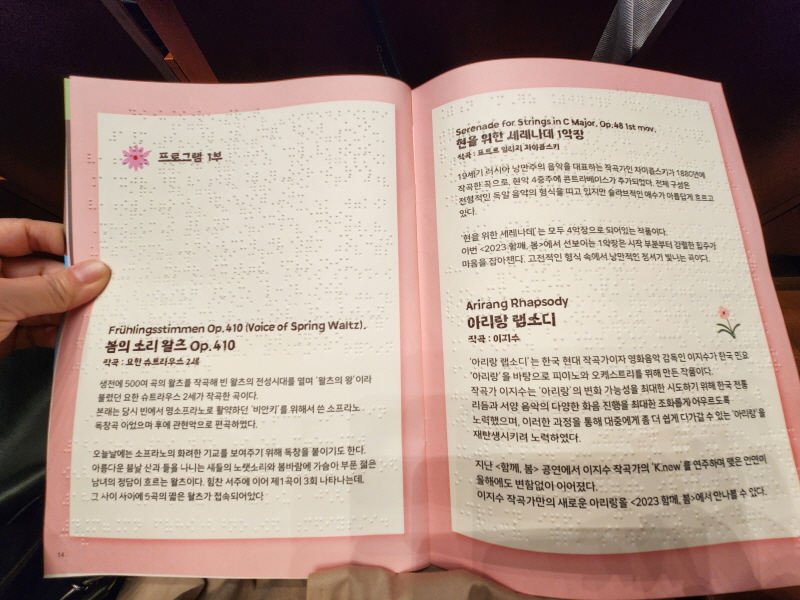 프로그램 1부
Frühlingsstimmen Op.410 (Voice of Spring Waltz).
봄의 소리 왈츠 Op.410
작곡 : 요한 슈트라우스 2세
생전에 500여 곡의 왈츠를 작곡해 빈 왈츠의 전성시대를 열며 '왈츠의 왕'이라
불렸던 요한 슈트라우스 2세가 작곡한 곡이다.
본래는 당시 빈에서 명소프라노로 활약하던 '비안키'를 위해서 쓴 소프라노
독창곡 이었으며 후에 관현악으로 편곡하였다.
오늘날에는 소프라노의 화려한 기교를 보여주기 위해 독창을 붙이기도 한다.
아름다운 봄날 산과 들을 나니는 새들의 노랫소리와 봄바람에 가슴이 부푼 젊은
남녀의 정담이 흐르는 왈츠이다. 힘찬 서주에 이어 제1곡이 3회 나타나는데,
그 사이 사이에 5곡의 짧은 왈츠가 접속되어있다
14
Serenade for Strings in C Major. Op.48 1st mov.
현을 위한 세레나데 1악장
작곡 : 표트르 일리치 차이콥스키
19세기 러시아 낭만주의 음악을 대표하는 작곡가인 차이콥스키가 1880년에
작곡한 곡으로, 현악 4중주에 콘트라베이스가 추가되었다. 전체 구성은
전형적인 독일 음악의 형식을 띠고 있지만 슬라브적인 애수가 아름답게 흐르고
있다.
'현을 위한 세레나데'는 모두 4악장으로 되어있는 작품이다.
이번 <2023 함께, 봄>에서 선보이는 1악장은 시작 부분부터 강렬한 합주가
마음을 잡아챈다. 고전적인 형식 속에서 낭만적인 정서가 빛나는 곡이다.
Arirang Rhapsody
아리랑 랩소디
작곡 : 이지수
'아리랑 랩소디'는 한국 현대 작곡가이자 영화음악 감독인 이지수가 한국 민요
'아리랑'을 바탕으로 피아노와 오케스트라를 위해 만든 작품이다.
작곡가 이지수는 '아리랑'의 변화 가능성을 최대한 시도하기 위해 한국 전통
리듬과 서양 음악의 다양한 화음 진행을 최대한 조화롭게 아우르도록
노력했으며, 이러한 과정을 통해 대중에게 좀 더 쉽게 다가갈 수 있는 '아리랑'을
재탄생시키려 노력하였다.
지난 <함께, 봄> 공연에서 이지수 작곡가의 'K.new'를 연주하며 맺은 인연이
올해에도 변함없이 이어졌다.
이지수 작곡가만의 새로운 아리랑을 <2023 함께, 봄>에서 만나볼 수 있다.